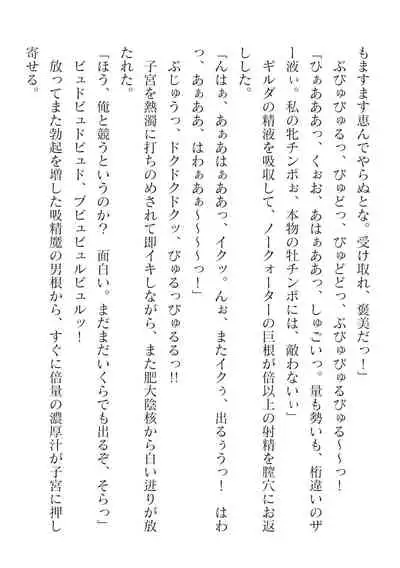 もますます恵んでやらぬとな。受け取れ、褒美だっ！」
ぶぴゅぴゅるっ、ぴゅどっ、ぴゅどどっ、ぶぴゅぴゅるぴゅる〜〜っ！
「ひぁあああっ、くぉお、あはぁああっ、しゅごいっ。量も勢いも、桁違いのザ
ー液ぃ。私の牝チンポぉ、本物の牡チンポには、敵わないぃ」
ギルダの精液を吸収して、ノークォーターの巨根が倍以上の射精を膣穴にお返
しした。
「んはぁ、あぁあはぁああっ、イクッ。んぉ、またイクぅ、出るぅうっ！　はわ
っ、あぁああ、はわぁあぁ〜〜〜〜っ！」
ぶじゅうっ、ドクドクドクッ、ぴゅるっぴゅるるっ!!
子宮を熱濁に打ちのめされて即イキしながら、また肥大陰核から白い迸りが放
たれた。
「ほう、俺と競うというのか？　面白い。まだまだいくらでも出るぞ、そらっ」
ビュドビュドビュド、ブビュビュルビュルッ！
放ってまた勃起を増した吸精魔の男根から、すぐに倍量の濃厚汁が子宮に押し
寄せる。